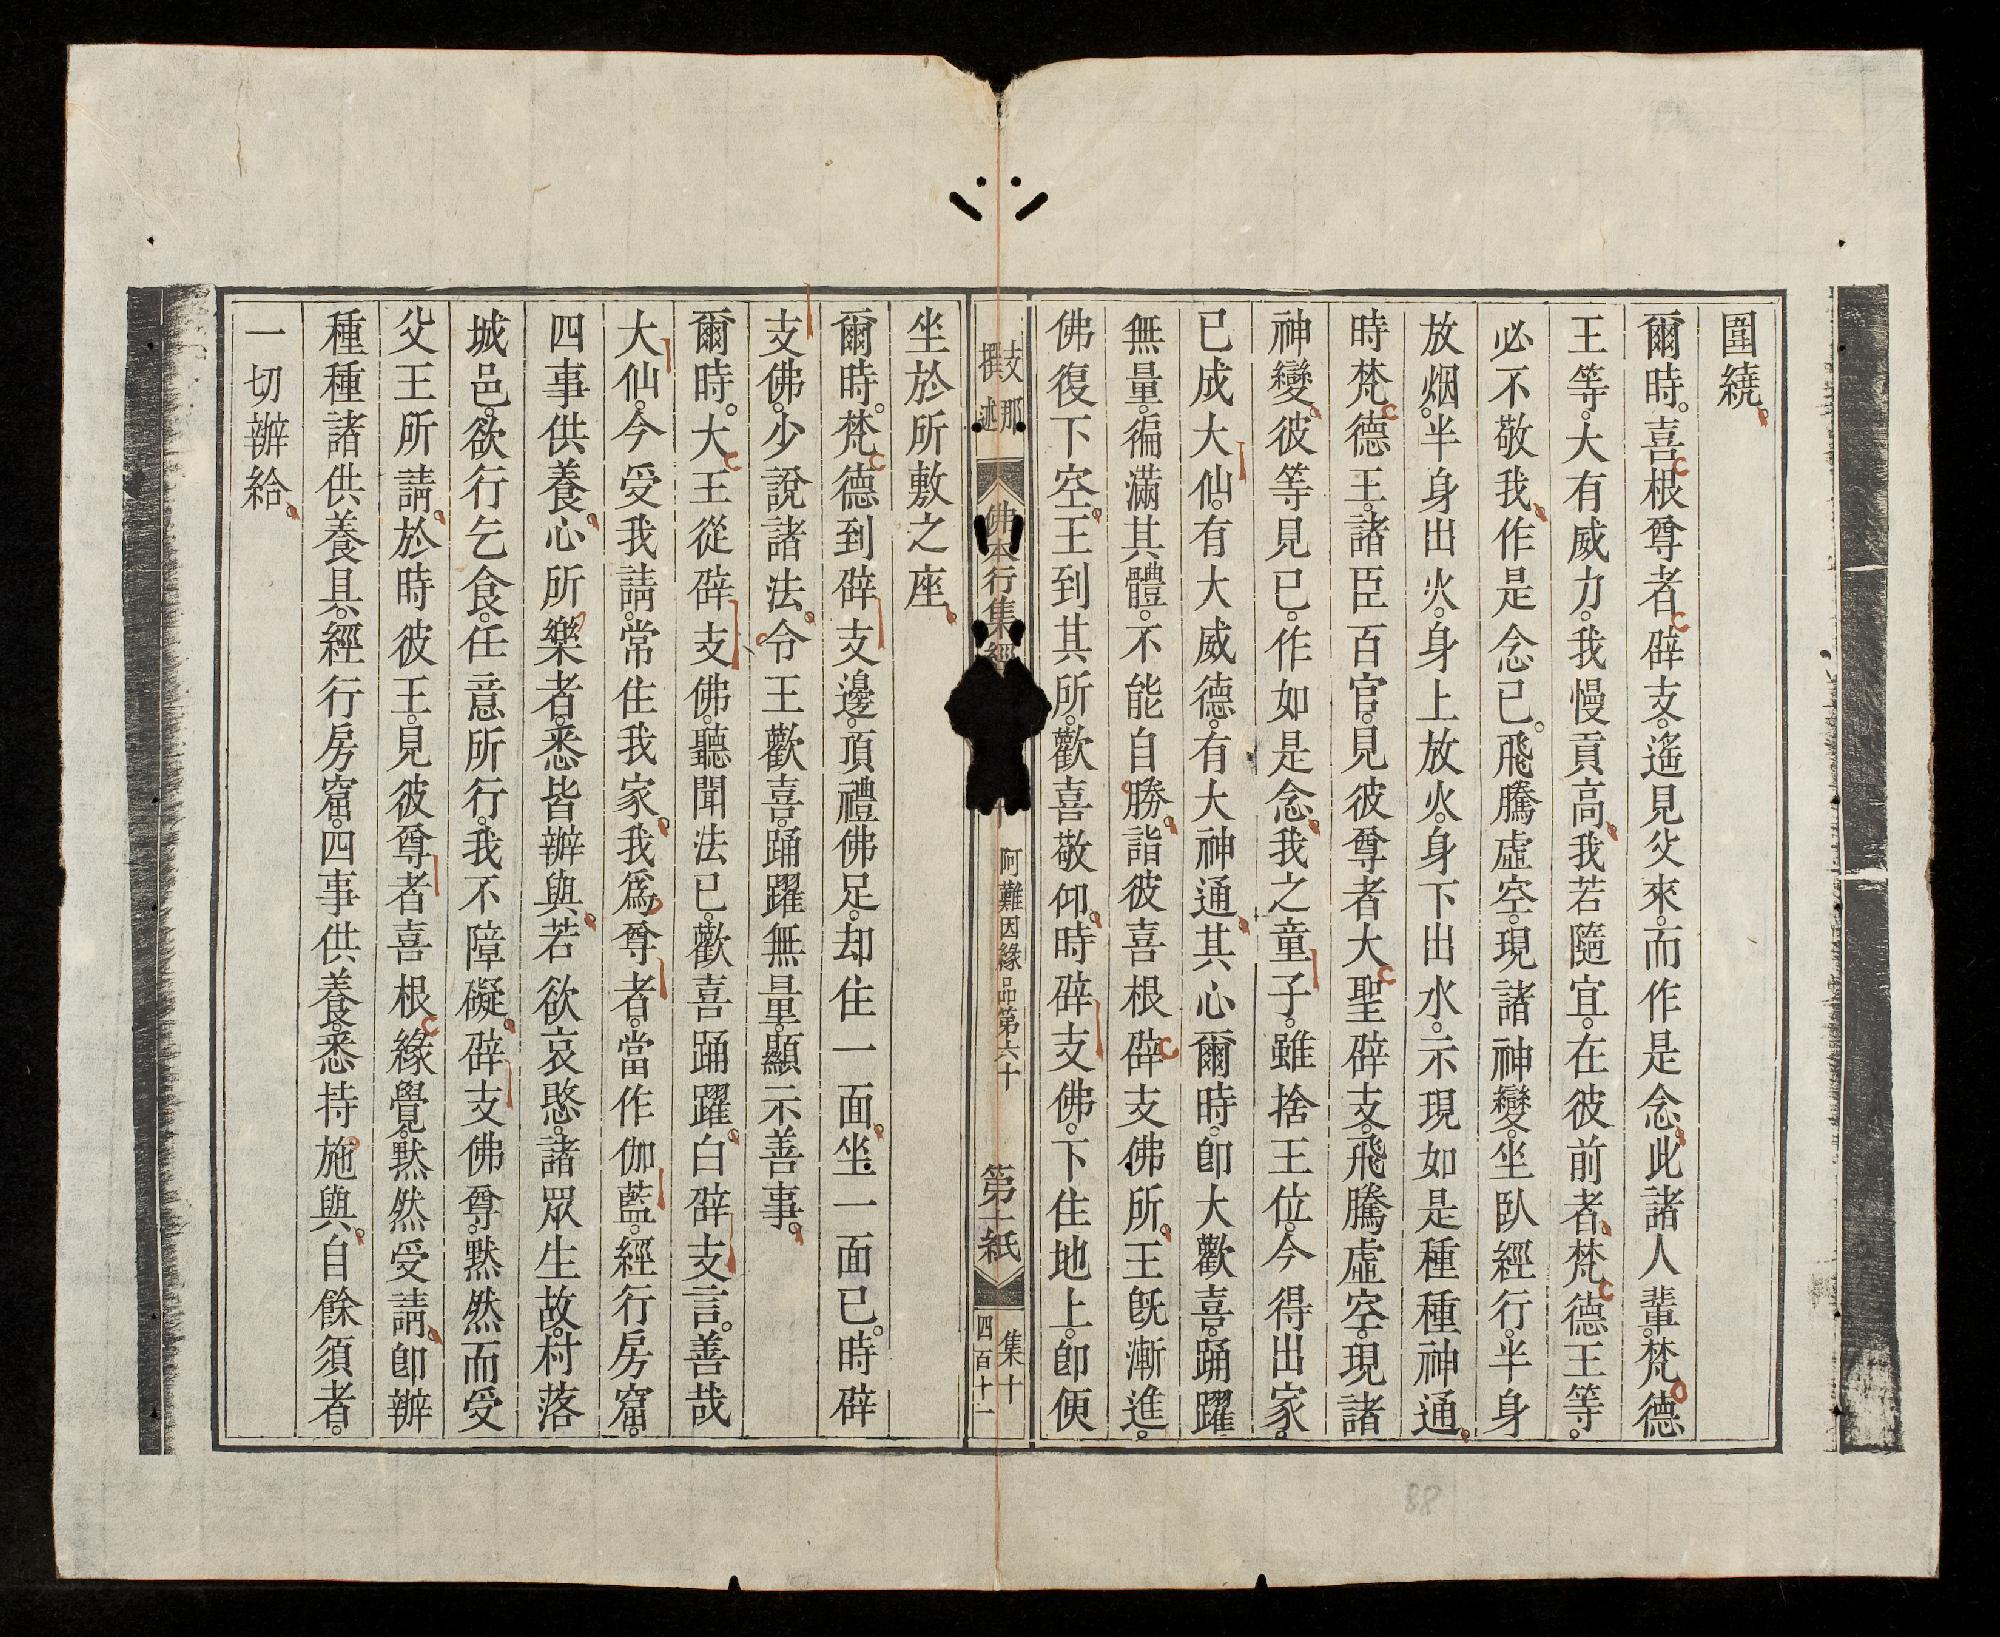 圍繞。
爾時。喜根尊者辟支。遙見父來。而作是念。此諸人輩。梵德
王等。大有威力。我慢貢高。我若隨宜。在彼前者。梵德王等。
必不敬我。作是念已。飛騰虛空。現諸神變。坐臥經行。半身
放烟。半身出火。身上放火。身下出水。示現如是種種神通。
時梵德王。諸臣百官。見彼尊者大聖辟支。飛騰虛空。現諸
神變。彼等見已。作如是念。我之童子。雖捨王位。今得出家。
已成大仙。有大威德。有大神通。其心爾時。卽大歡喜。踊躍
無量。徧滿其體。不能自勝。詣彼喜根辟支佛所。王旣漸進。
佛復下空。王到其所。歡喜敬仰。時辟支佛。下住地上。卽便
支那
撰述
佛本行集經
阿難因緣品第六十
第十紙
集十
四百十一
坐於所敷之座。
爾時。梵德到辟支邊。頂禮佛足。却住一面。坐一面已。時辟
支佛。少說諸法。令王歡喜。踊躍無量。顯示善事。
爾時。大王從辟支佛。聽聞法已。歡喜踊躍。白辟支言。善哉
大仙。今受我請。常住我家。我爲尊者。當作伽藍。經行房窟。
四事供養。心所樂者。悉皆辦與。若欲哀愍。諸眾生故。村落
城邑。欲行乞食。任意所行。我不障礙。辟支佛尊。默然而受
父王所請。於時彼王。見彼尊者喜根緣覺。默然受請。卽辦
種種諸供養具。經行房窟。四事供養。悉持施與。自餘須者。
一切辦給。
88